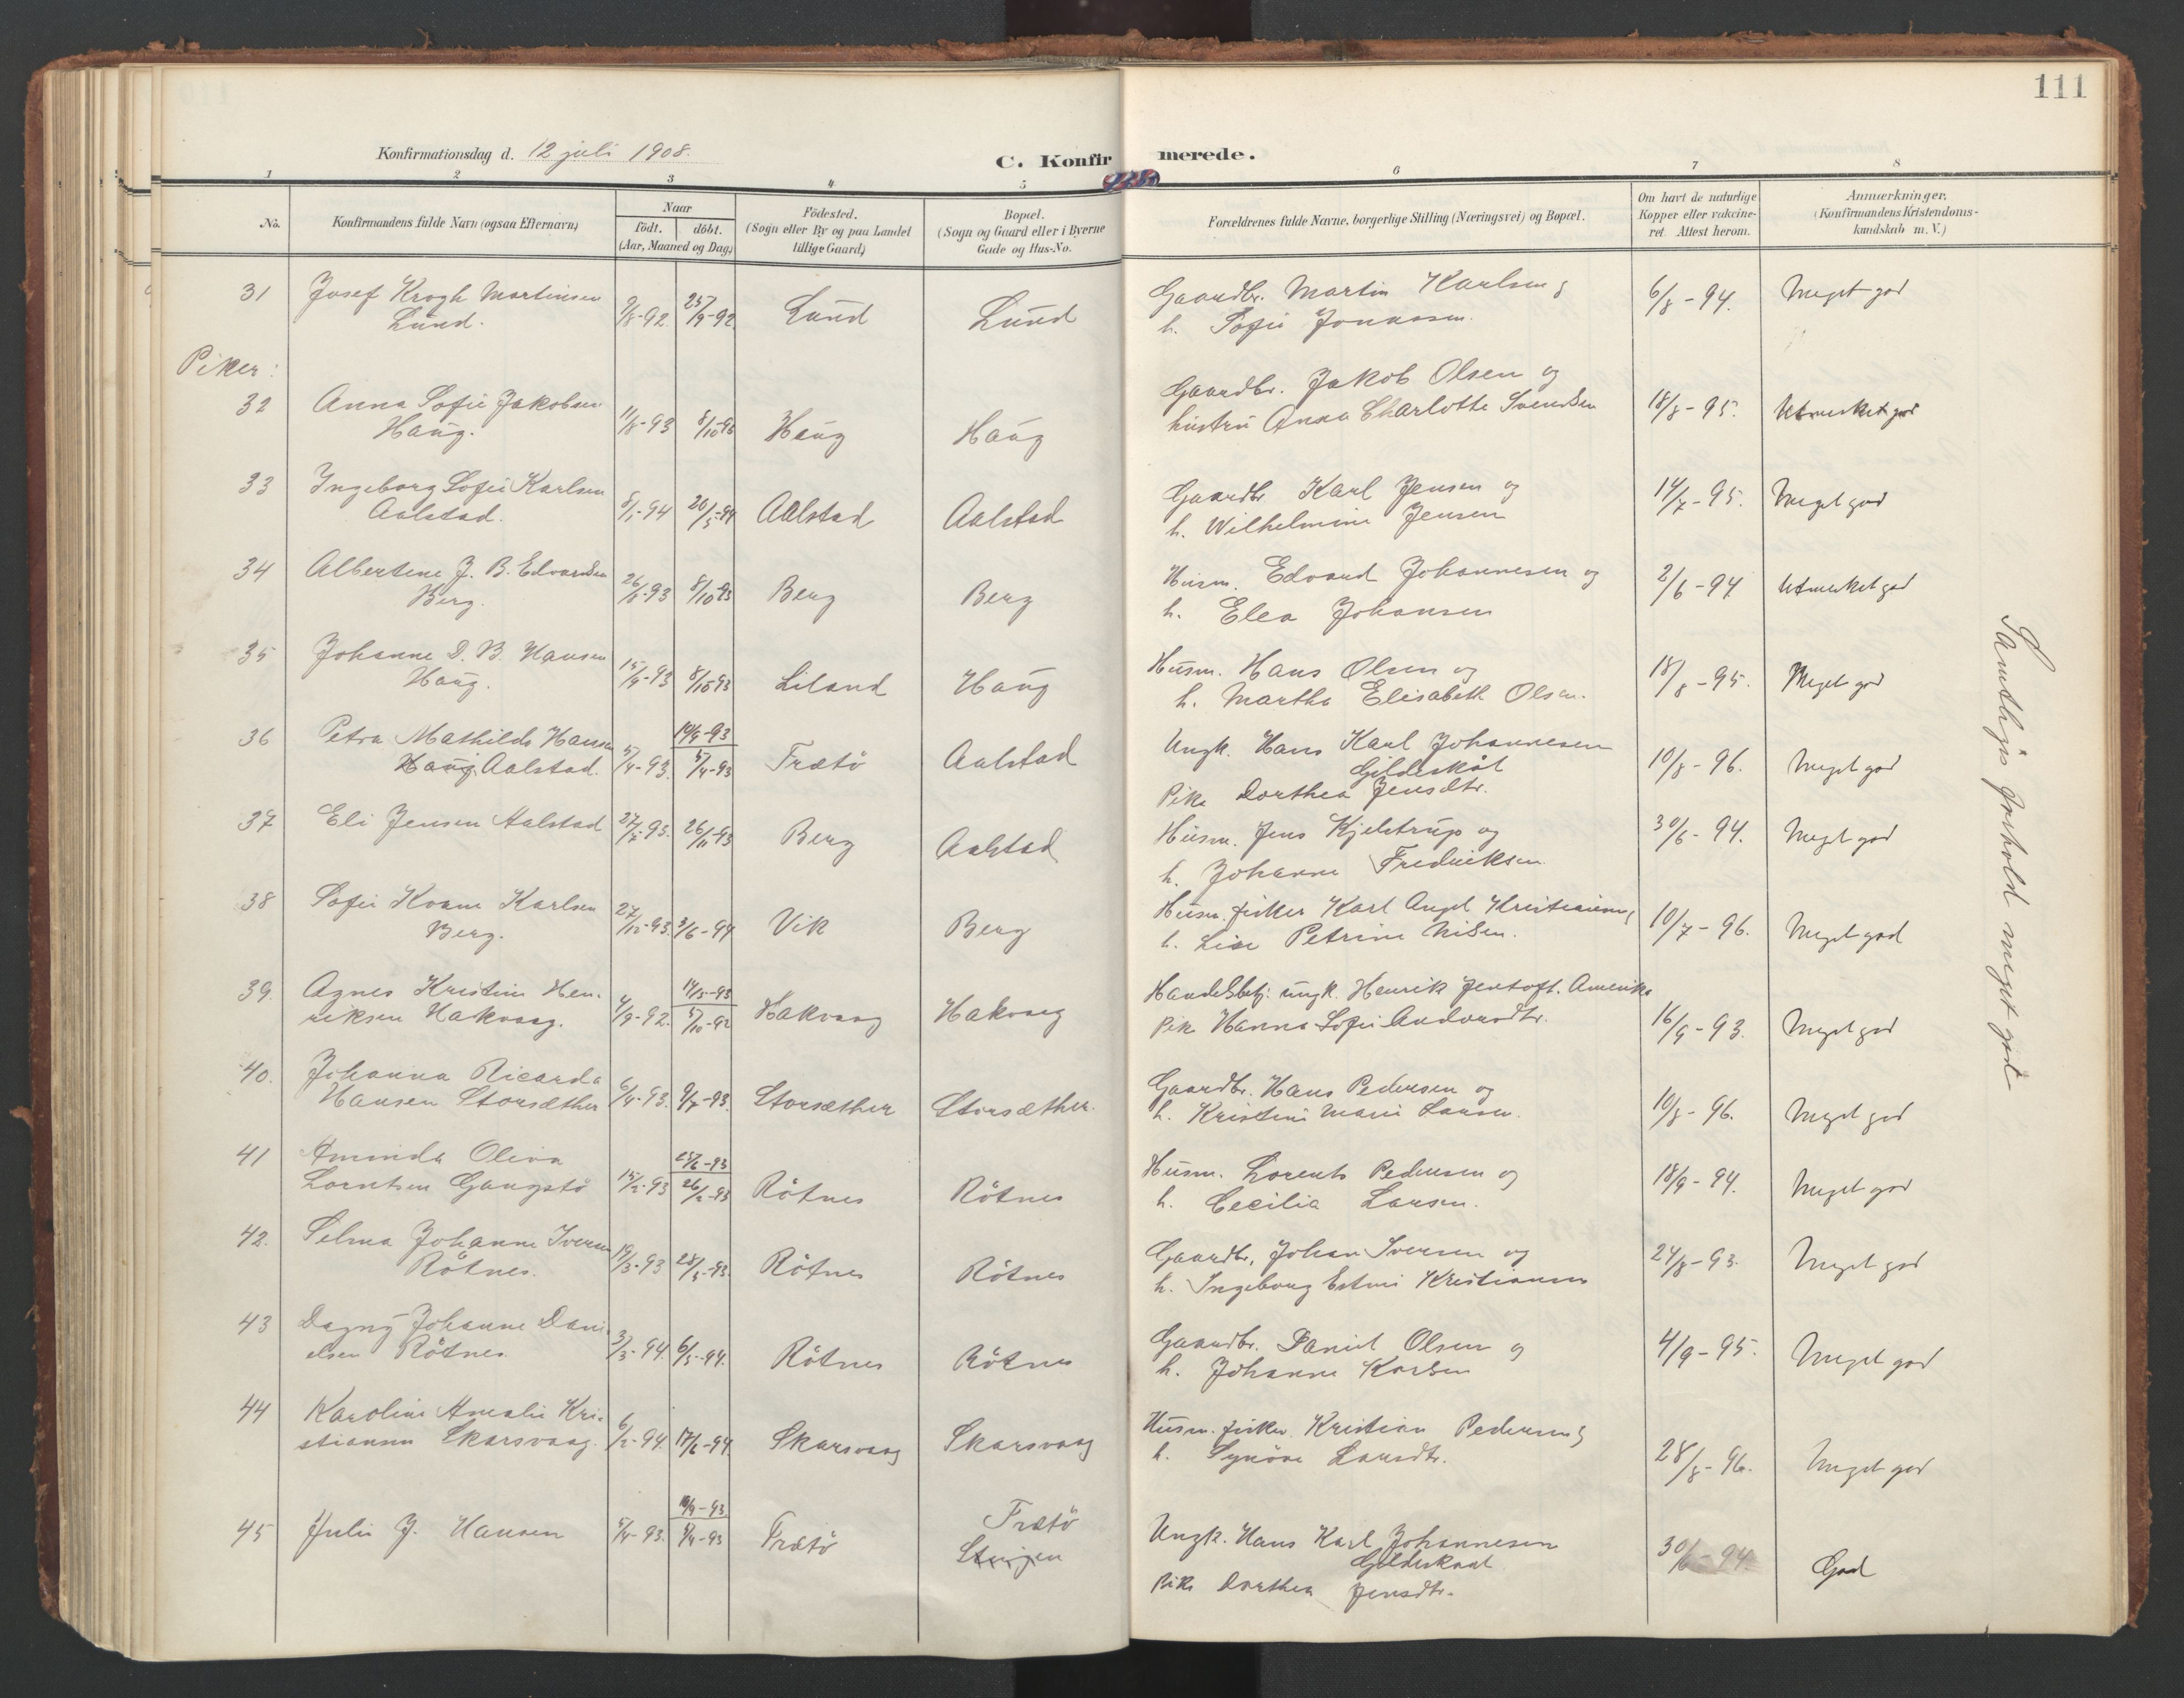 111
Konfirmationsdag d. 12 juli 1908.
C. Konfirmerede.
1 2 3 4 5 6 7 8
No.
Konfirmandens fulde Navn (ogsaa Efternavn)
Naar
födt. döbt.
(Aar, Maaned og Dag)
Födested.
(Sogn eller By og paa Landet
tillige Gaard)
Bopæl.
(Sogn og Gaard eller i Byerne
Gade og Hus-No.
Forældrenes fulde Navne, borgerlige Stilling (Næringsvei) og Bopæl.
Om havt de naturlige
Kopper eller vakcine-
ret. Attest herom.
Anmærkninger.
(Konfirmandens Kristendoms-
kundskab m. V.)
31 Josef Krogh Martinsen
Lund. 9/8-92 25/9-92 Lund Lund
Gaardbr. Martin Karlsen og
h. Sofie Jonassen. 6/8-94. Meget god
Piker:
32 Anna Sofie Jakobsen
Haug. 11/8-93 8/10-93 Haug Haug
Gaardbr. Jakob Olsen og
hustru Anna Charlotte Svendsen 18/8-95. Utmerket god
33 Ingeborg Sofie Karlsen
Aalstad. 8/1-94 20/5-94 Aalstad Aalstad
Gaardbr Karl Jensen og
h. Wilhelmine Jensen 14/7-95. Meget god
34 Albertine J. B. Edvardsen
Berg. 26/8-93 8/10-93 Berg Berg
Husm. Edvard Johannesen og
h. Elea Johansen 2/6-94 Utmerket god
35 Johanne D. B. Hansen
Haug. 15/9-93 8/10-93 Liland Haug
Husm. Hans Olsen og
h. Martha Elisabeth Olsen. 18/8-95. Meget god
36 Petra Mathilde Hansen
Haug Aalstad. 5/4-93. 10/9-93
5/4-93 Trætö Aalstad
Ungk. Hans Karl Johannesen
Gildeskål
Pike Dorthea Jensdtr. 10/8-96. Meget god
37 Eli Jensen Aalstad 27/7-93. 26/11-93 Berg Aalstad
Husm. Jens Kjelstrup og
h. Johanne Fredriksen. 30/6-94. Meget god
38 Sofie Kvame Karlsen
Berg. 27/12-93. 3/6-94 Vik Berg
Husm. fisker Karl Angel Kristiansen og
h. Lise Petrine Nilsen. 10/7-96. Meget god
39. Agnes Kristine Hen-
riksen Hakvaag. 4/9-92. 14/5-93
5/10-92 Hakvaag Hakvaag
Handelsbetj. ungk. Henrik Jentoft. Amerika
Pike Hanna Sofie Andorsdtr. 16/9-93. Meget god
40. Johanna Ricarda
Hansen Storsæther 6/4-93. 9/7-93. Storsæther Storsæther.
Gaardbr. Hans Pedersen og
h. Kristine Marie Larsen. 10/8-96. Meget god
41 Aminda Oliva
Lorntsen Gangstö 15/2-93 25/6-93
26/2-93 Rötnes Rötnes
Husm. Lorents Pedersen og
h. Cecilia Larsen. 18/9-94. Meget god
42. Selma Johanne Iversen
Rötnes. 19/3-93 28/5-93. Rötnes Rötnes
Gaardbr, Johan Iversen og
h. Ingeborg Estine Kristiansen 24/8-93. Meget god
43 Dagny Johanne Dani-
elsen Rötnes. 3/3-94. 6/5-94. Rötnes Rötnes
Gaardbr. Daniel Olsen og
h. Johanne Karlsen 4/9-95. Meget god
44 Karoline Amalie Kri-
stiansen Skarsvaag. 6/2-94. 17/6-94 Skarsvaag Skarsvaag
Husm. fisker. Kristian Pedersen og
h. Synöve Larsdtr. 28/8-96. Meget god
45 Julie J. Hansen 5/4-93. 10/9-93
5/4-93 Trætö Trætö
Ungk. Hans Karl Johannesen
Gildeskaal.
Pike Dorthea Jensdtr. 30/6-94. God
Samtliges forhold meget godt